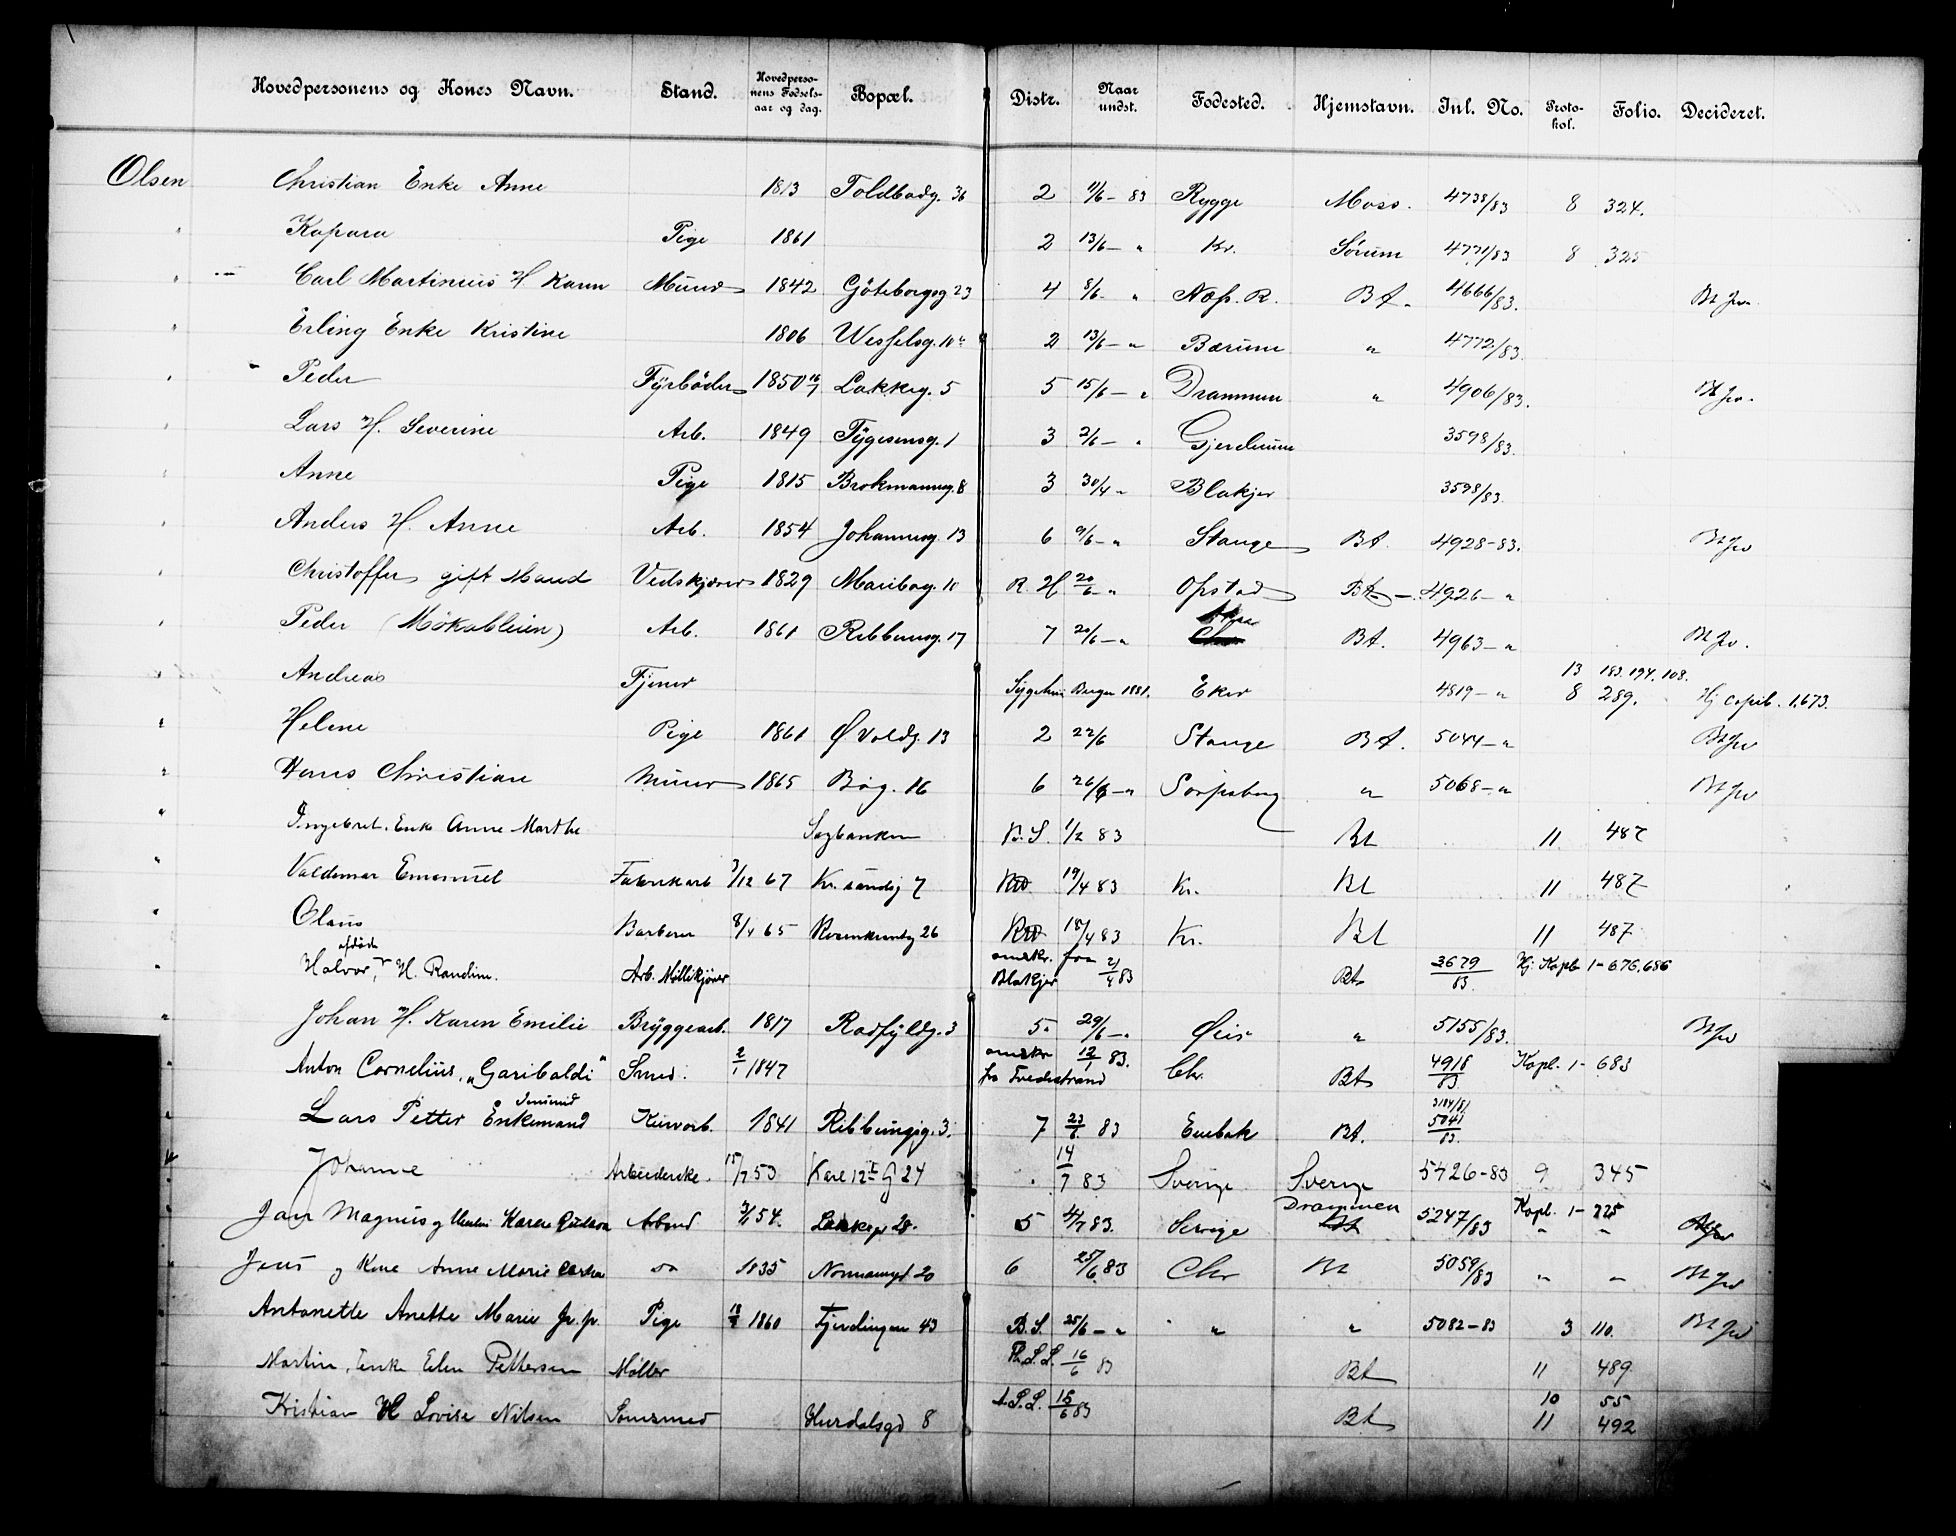 Hovedpersonens og Kones Navn. Stand. Hovedpersonens Fødselsaar og dag. Bopæl. Distr. Naar undst. Fødested. Hjemstavn. Inl. No. Protokol. Folio. Decideret.
Olsen Christian Enke Anne 1813 Toldbodg. 36 2 11/6 - 83 Rygge Moss. 4738/83 8 324.
" Kapara Pige 1861 2 13/6 - " Kr. Sørum 4771/83 8 325
" Carl Martinius H Karen Murer 1842 Göteborgsg 23 4 8/6 " Næs. R. Bt. 4666/83.
" Erling Enke Kristine 1806 Wesselsg. 10 2 13/6 - " Bærum " 4772/83.
" Peder Fyrbøder 1850 Lakkeg. 5 5 15/6 - " Drammen " 4906/83.
" Lars H. Severine Arb. 1849 Tygesensg. 1 3 2/6 - " Gjerdrum 3598/83.
" Anne Pige 1815 Brokmannsg. 8 3 30/4 " Blakjer 3598/83.
" Anders H. Anne Arb. 1854 Johannesg. 13 6 9/6 - " Stange Bt. 4928-83.
" Christoffer gift Maud Vedskjærer 1829 Maribog. 10 R. H 20/6 - " Opstad Bt - 4926 - "
" Peder (Møkableien) Arb. 1861 Ribbensg. 17 7 20/6 - " Aker Bt. 4963 - "
13 183. 194. 108.
" Andreas Tjener Sygehus Bergen 1881. Eker 4819 - " 8 289. Hj copib. 1.673.
" Helene Pige 1861 Ø Voldg. 13 2 22/6 Stange Bt. 5044 - "
" Hans Christian Murer 1865 Bøg. 16 6 26/6 - " Sarpsborg " 5068 - "
" Ingebret. Enke Anne Marthe Sagbanken B. S. 1/2 83 Bt 11 487
" Valdemar Emanuel Fabrikarb 3/12 67 Kr. sandsg 7 19/4 83 Kr. Bt 11 487
" Olaus Barberer 8/4 65 Rosenkrantzg 26 18/4 83 Kr. Bt 11 487
afdøde
Halvor, H. Randine. Arb. Møllekjører omskr. fra Blakjer 21/4 83 Bt 3679/83 Hj. Kopb 1-676,686
" Johan H. Karen Emilie Bryggearb. 1817 Rodfyldg. 3 5. 29/6 - " " 5155/83.
" Anton Cornelius, "Garibaldi" Smed. 2/1 1847 omskr. fra Tvedestrand 12/1 83. Chr. Bt 4918/83 Kopb. 1 - 683
" Lars Petter Enkemand 1841 Ribbungsg. 3. 7 23/6. 83 Enebak Bt. 3184/81 5041/83.
" Johanne Arbeiderske. 15/7 53 Karl 12te G 24 14/7 83 Sverige Sverige 5426-83 9 345
" Jan Magnus g Karen 54. Lakkeg 20. 5 4/7 83. Sverige Drammen 5247/83 Kopb. 1 - 225
Jens g Kone Anne Marie do 1835 Normansgd 20 6 25/6 83 Chr Bt 5059/83 " "
" Antonette Anette Marie Pige 1860 Fjerdingen 43 B. S. 25/6 - " " " 5082-83 3 110.
Martin, Enke Elen Pettersen Møller 16/6 83 Bt 11 489
Kristian H Lovise Nilsen Hurdalsgd 8 A. S. L. 15/6 83 Bt 10 55
11 492